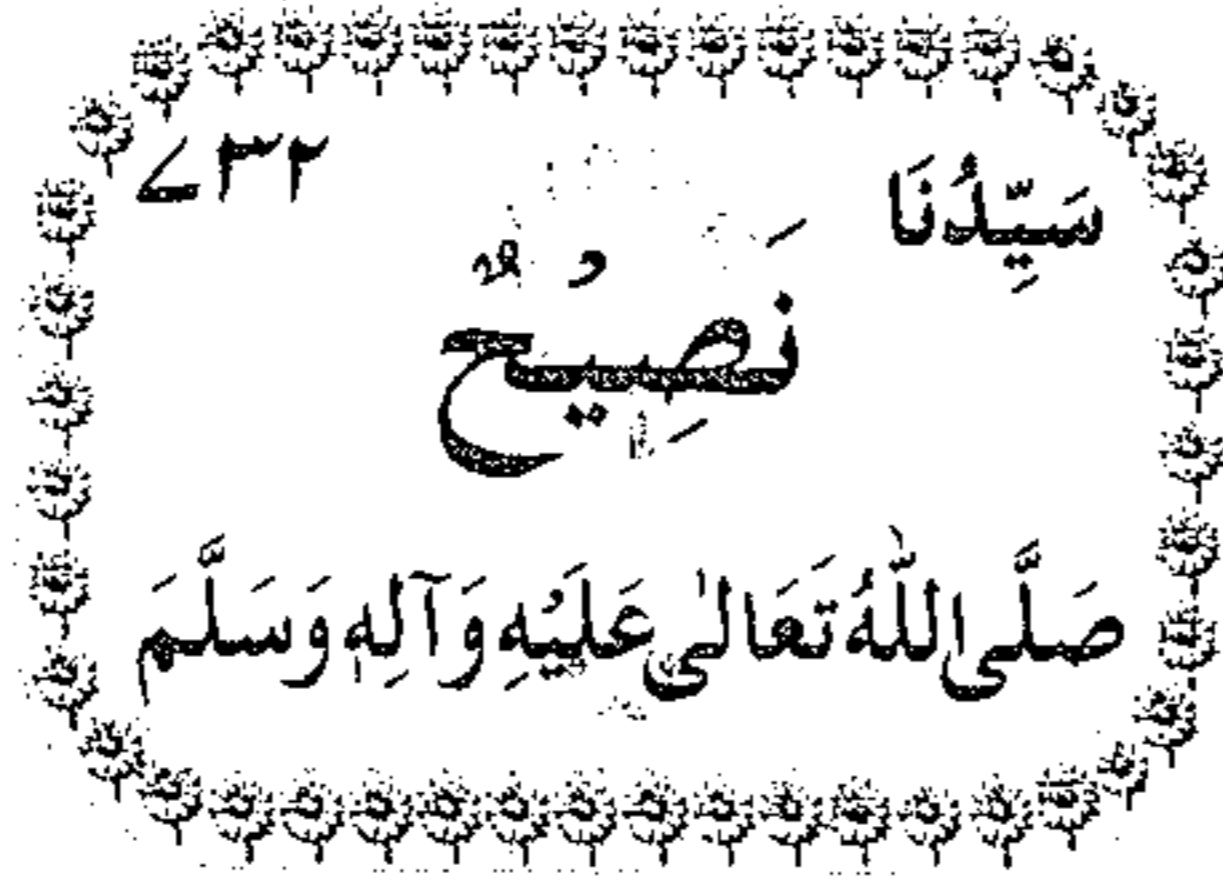 سَيِّدُنَا ۷۳۲
نَصِيْحٌ
صَلَّى اللّٰهُ تَعَالٰى عَلَيْهِ وَآلِهٖ وَسَلَّمَ